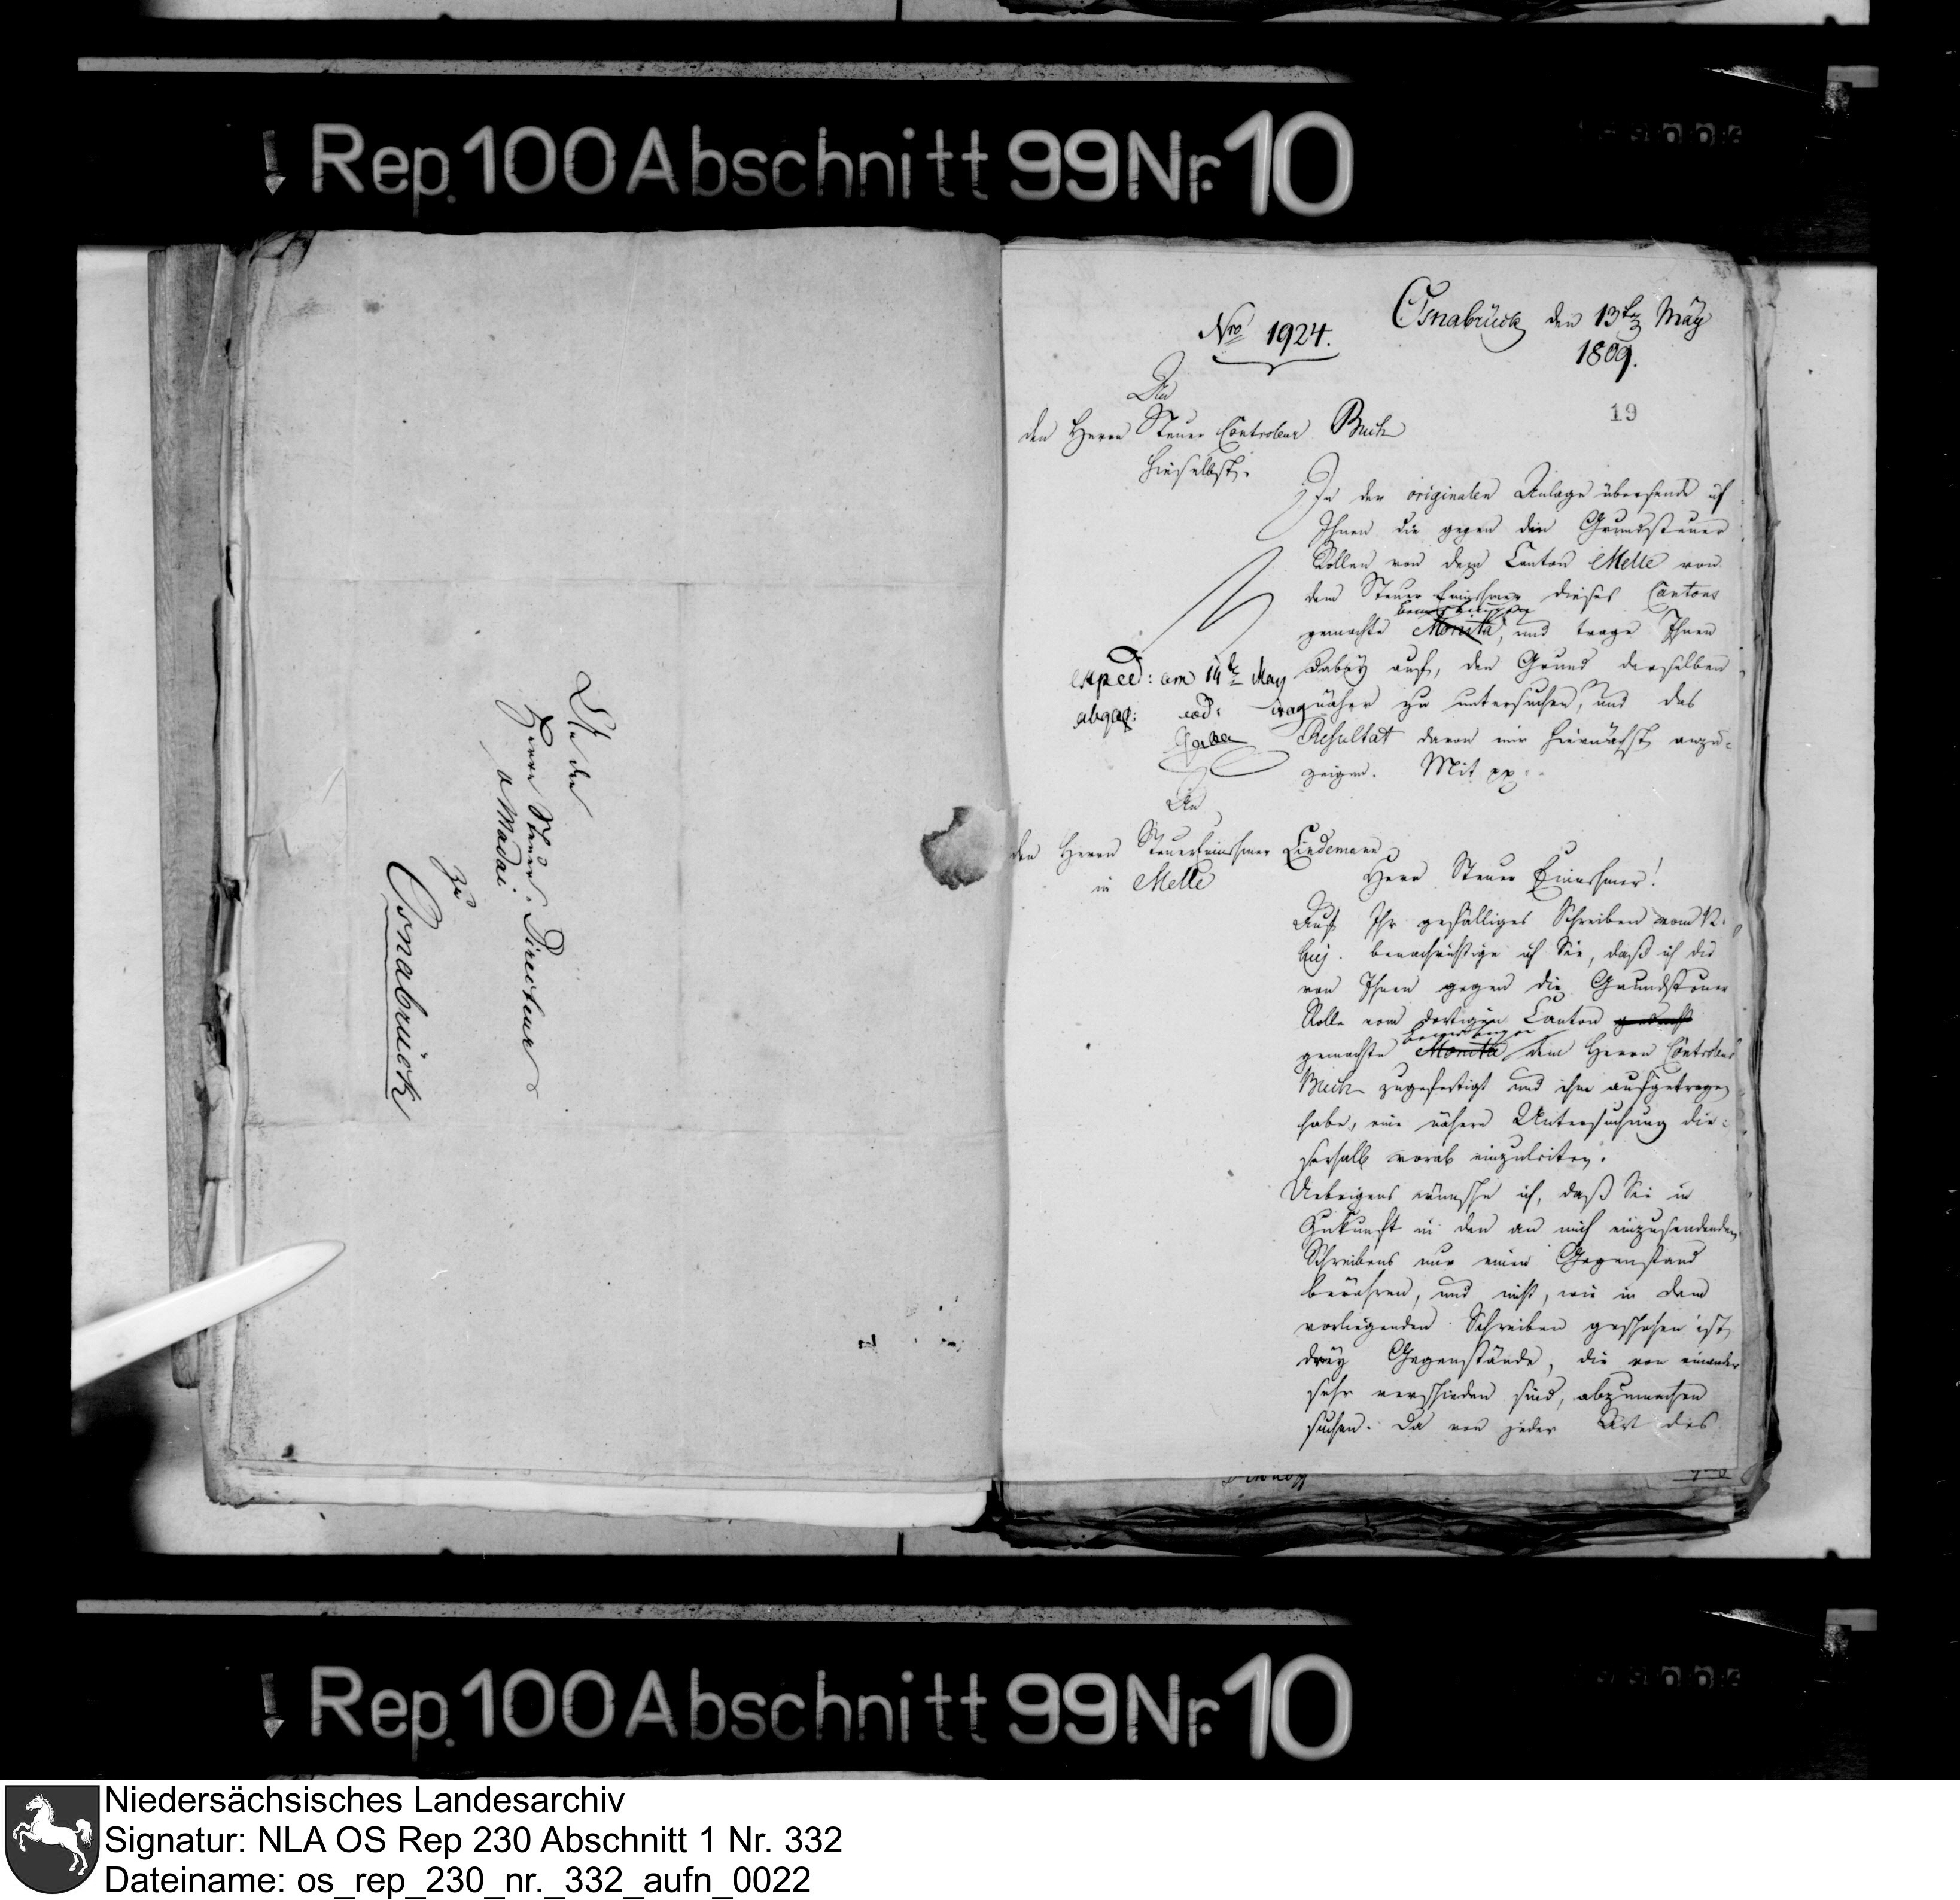 Rep. 100 Abschnitt 99 Nr. 10
An den
Herrn Steuer-Directeur
v Madai
zu
Osnabrück
Osnabrück den 13ten May
1809.
Nro 1924.
19
An
den Herrn Steuer Controleur Buch
hieselbst.
In der originalen Anlage übersende ich
Ihnen die gegen die Grundsteuer
Rollen von dem Canton Melle von
dem Steuer Einnehmer dieses Cantons
Bemerkungen
gemachte Monita, und trage Ihnen
dabey auf, den Grund derselben
näher zu untersuchen, und das
Resultat davon mir hiernächst anzu-
zeigen. Mit pp.
exped: am 14te May
abgeg: eod:
An
den Herrn Steuereinnehmer Lindemann
in Melle
Herr Steuer Einnehmer!
Auf Ihr gefälliges Schreiben vom 12.
huj. benachrichtige ich Sie, daß ich die
von Ihnen gegen die Grundsteuer
Rolle vom dortigen Canton
Bemerkungen
gemachte Monita dem Herrn Controleur
Buch zugefertigt und ihm aufgetragen
habe, eine nähere Untersuchung die-
serhalb vorab einzuleiten.
Uebrigens wünsche ich, daß Sie in
Zukunft in den an mich einzusendenden
Schreibens nur einen Gegenstand
berühren, und nicht, wie in dem
vorliegenden Schreiben geschehen ist,
drey Gegenstände, die von einander
sehr verschieden sind, abzumachen
suchen. Da von jeder Art des
Rep. 100 Abschnitt 99 Nr. 10
Niedersächsisches Landesarchiv
Signatur: NLA OS Rep 230 Abschnitt 1 Nr. 332
Dateiname: os_rep_230_nr._332_aufn_0022